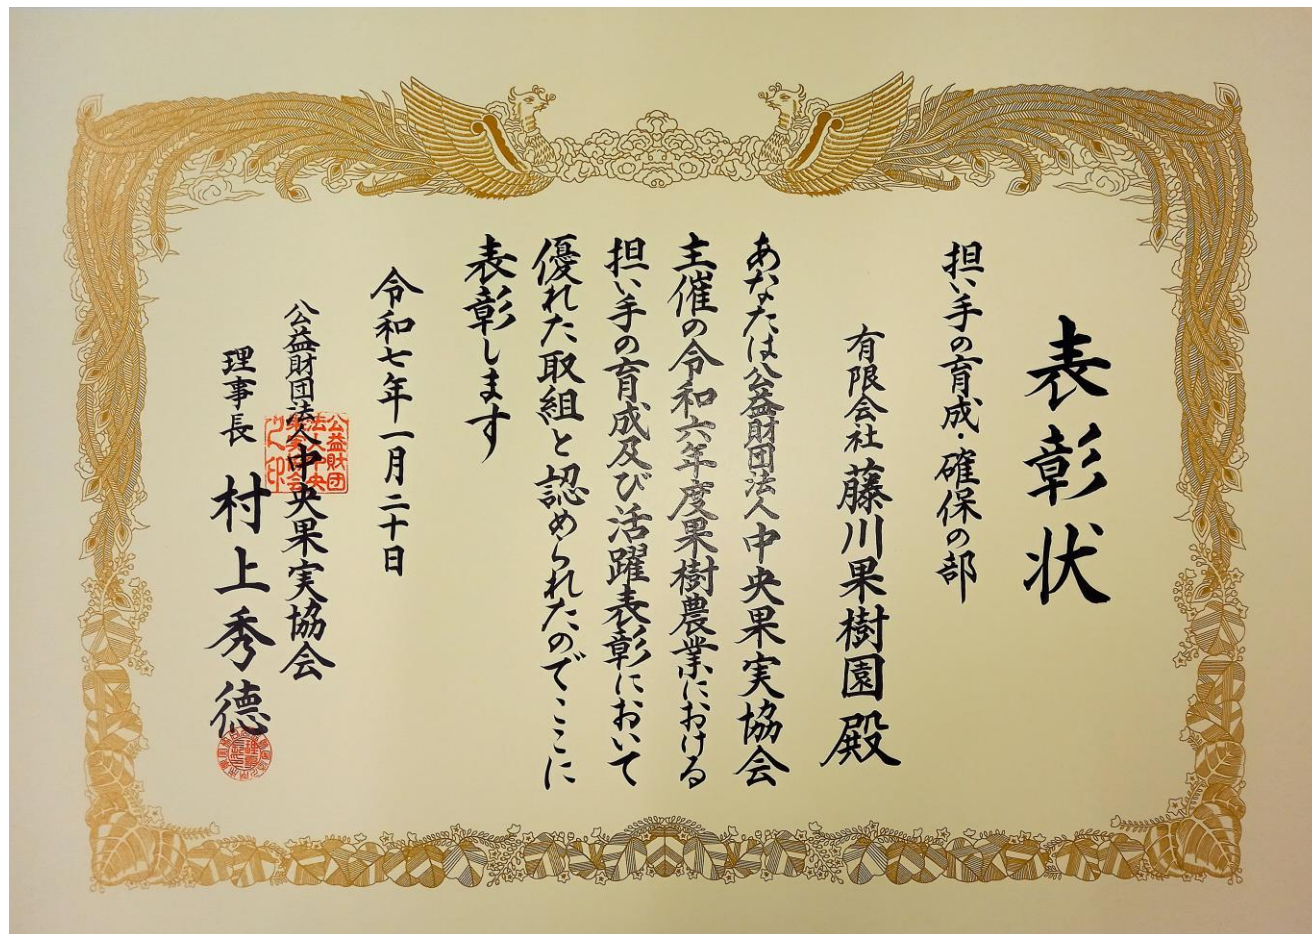 表彰状
担い手の育成・確保の部
有限会社 藤川果樹園 殿
あなたは公益財団法人中央果実協会
主催の令和六年度果樹農業における
担い手の育成及び活躍表彰において
優れた取組と認められたのでここに
表彰します
令和七年一月二十日
公益財団法人中央果実協会
理事長 村上秀德